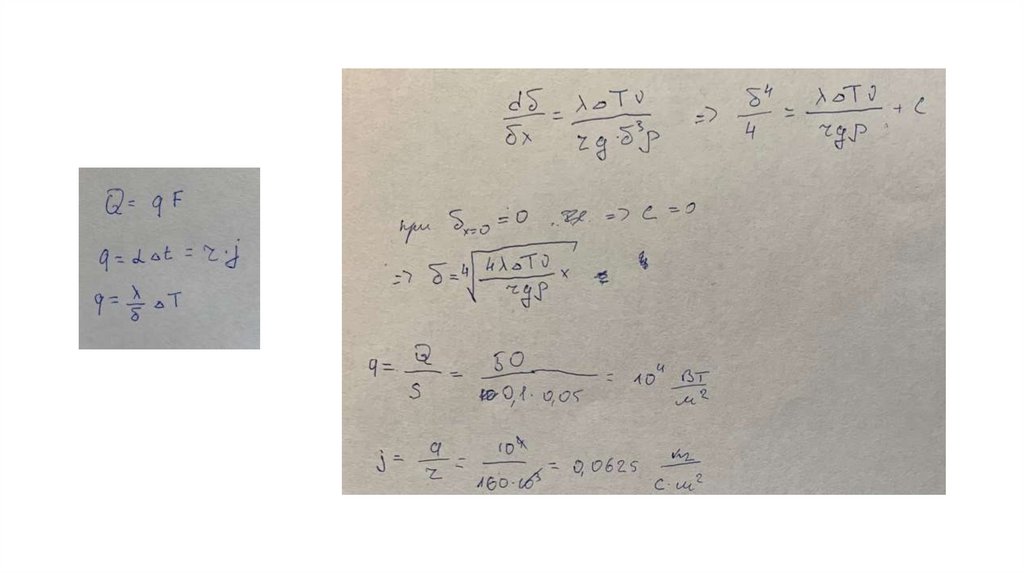 Q = qF
q = α Δt = r·j
q = λ/δ ΔT
dδ/δx = λΔTν/(rg·δ³ρ) => δ⁴/4 = λΔTν/(rgρ) + C
при δₓ₌₀ = 0 => C = 0
=> δ = ⁴√(4λΔTν/(rgρ) x)
q = Q/S = 50/(0,1·0,05) = 10⁴ Вт/м²
j = q/r = 10⁴/(160·10³) = 0,0625 кг/(с·м²)